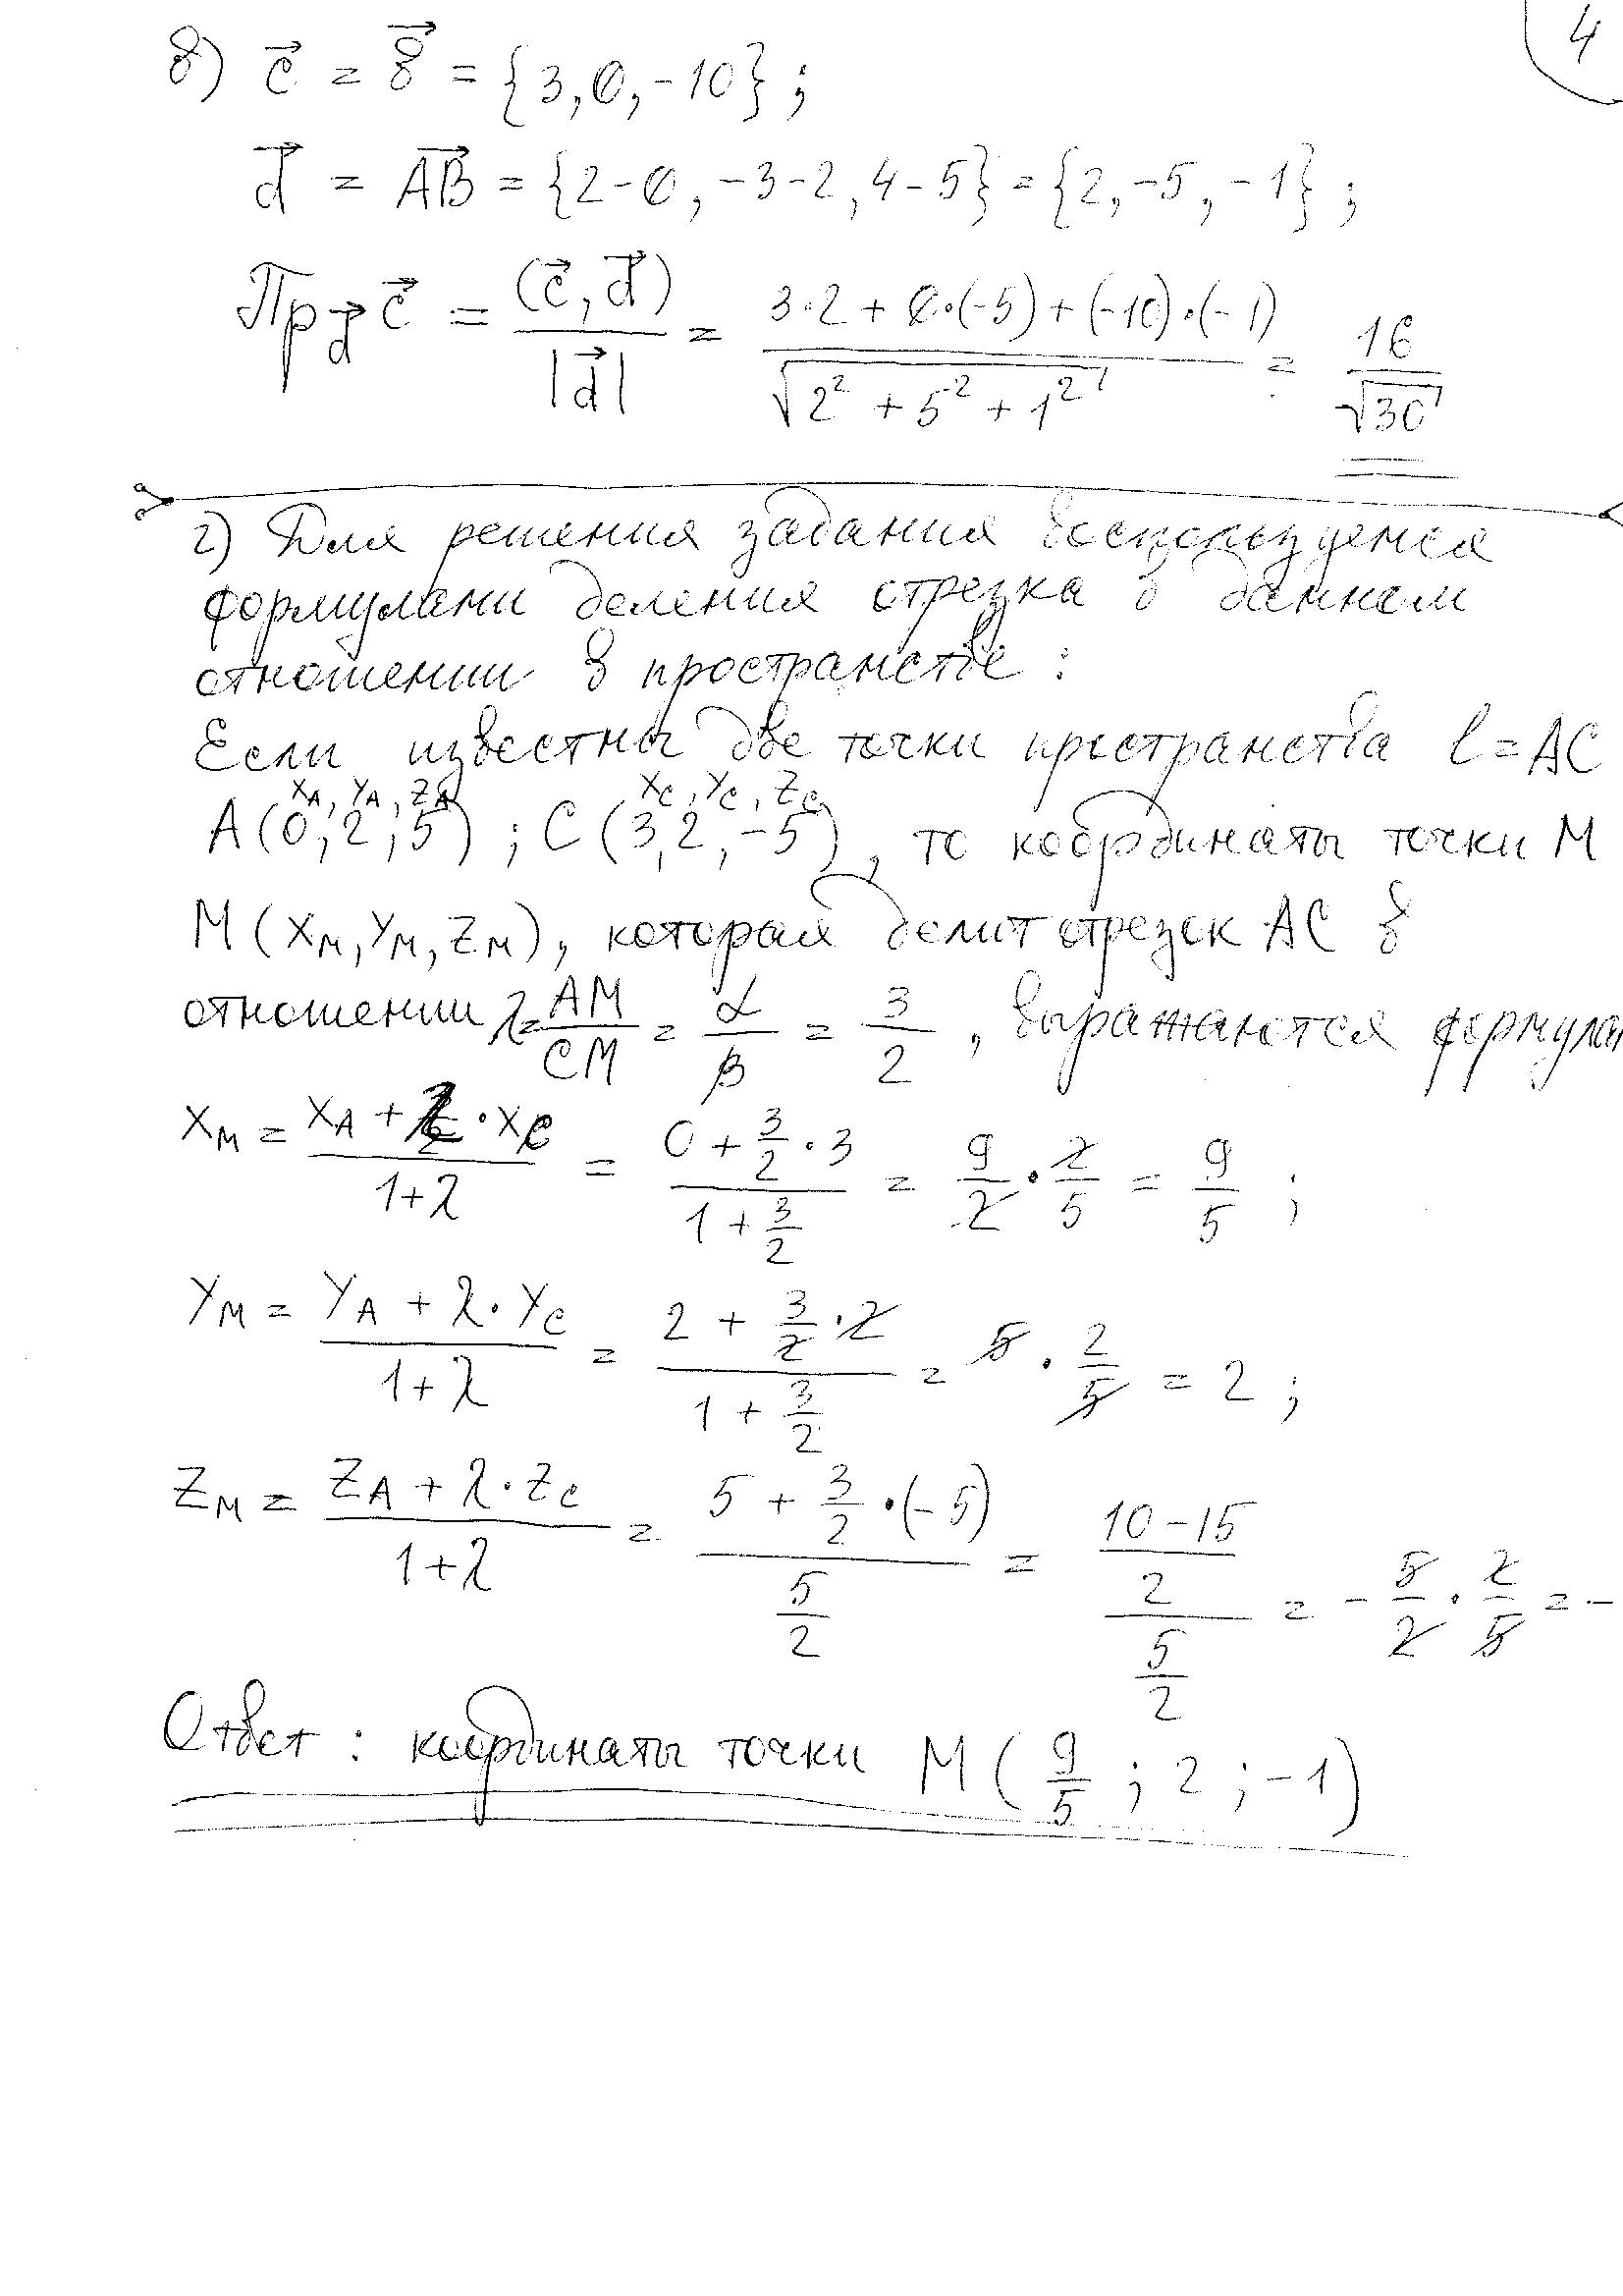 4
в) c⃗ = b⃗ = {3, 0, -10} ;
d⃗ = AB⃗ = {2-0, -3-2, 4-5} = {2, -5, -1} ;
Пр_d⃗ c⃗ = (c⃗, d⃗) / |d⃗| = (3·2 + 0·(-5) + (-10)·(-1)) / √(2² + 5² + 1²) = 16 / √30
г) Для решения задания воспользуемся
формулами деления отрезка в данном
отношении в пространстве :
Если известны две точки пространства l = AC
x_A, y_A, z_A x_C, y_C, z_C
A(0, 2, 5) ; C(3, 2, -5), то координаты точки M
M(x_M, y_M, z_M), которая делит отрезок AC в
отношении λ = AM / CM = α / β = 3 / 2 , выражаются формулам
x_M = (x_A + λ · x_C) / (1 + λ) = (0 + 3/2 · 3) / (1 + 3/2) = 9/2 · 2/5 = 9/5 ;
y_M = (y_A + λ · y_C) / (1 + λ) = (2 + 3/2 · 2) / (1 + 3/2) = 5 · 2/5 = 2 ;
z_M = (z_A + λ · z_C) / (1 + λ) = (5 + 3/2 · (-5)) / (5/2) = ((10 - 15)/2) / (5/2) = - 5/2 · 2/5 = -
Ответ : координаты точки M (9/5 ; 2 ; -1)